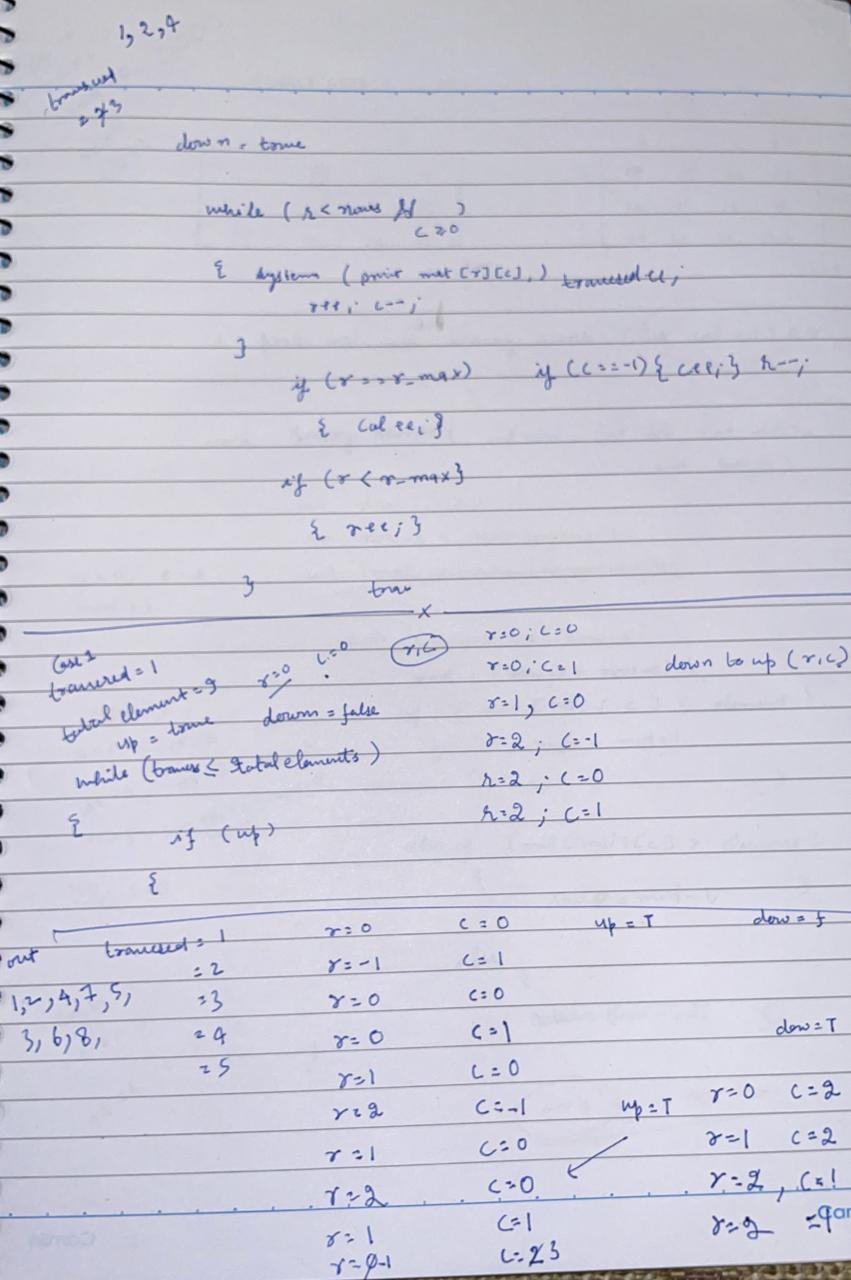 1, 2, 4
traversed
= 3
down = true
while (r < rows && )
c ≥ 0
{ System (print mat [r][c],) traversed++;
r++; c--;
}
if (r == r_max) if (c == -1) { c++; } r--;
{ col ++; }
if (r < r_max}
{ r++; }
} trav
x
Case 1
traversed = 1
total element = 9
up = true down = false
r=0 c=0
r,c
while (travers ≤ total elements)
{ if (up)
{
r=0; c=0
r=0; c=1 down to up (r,c)
r=1, c=0
r=2; c=-1
r=2; c=0
r=2; c=1
out traversed = 1 r=0 c=0 up = T dow = f
= 2 r=-1 c=1
1, 2, 4, 7, 5, =3 r=0 c=0
3, 6, 8, = 4 r=0 c=1 dow = T
= 5 r=1 c=0
r=2 c=-1 up = T r=0 c=2
r=1 c=0 r=1 c=2
r=2 c=0 r=2, c=1
r=1 c=1 r=2